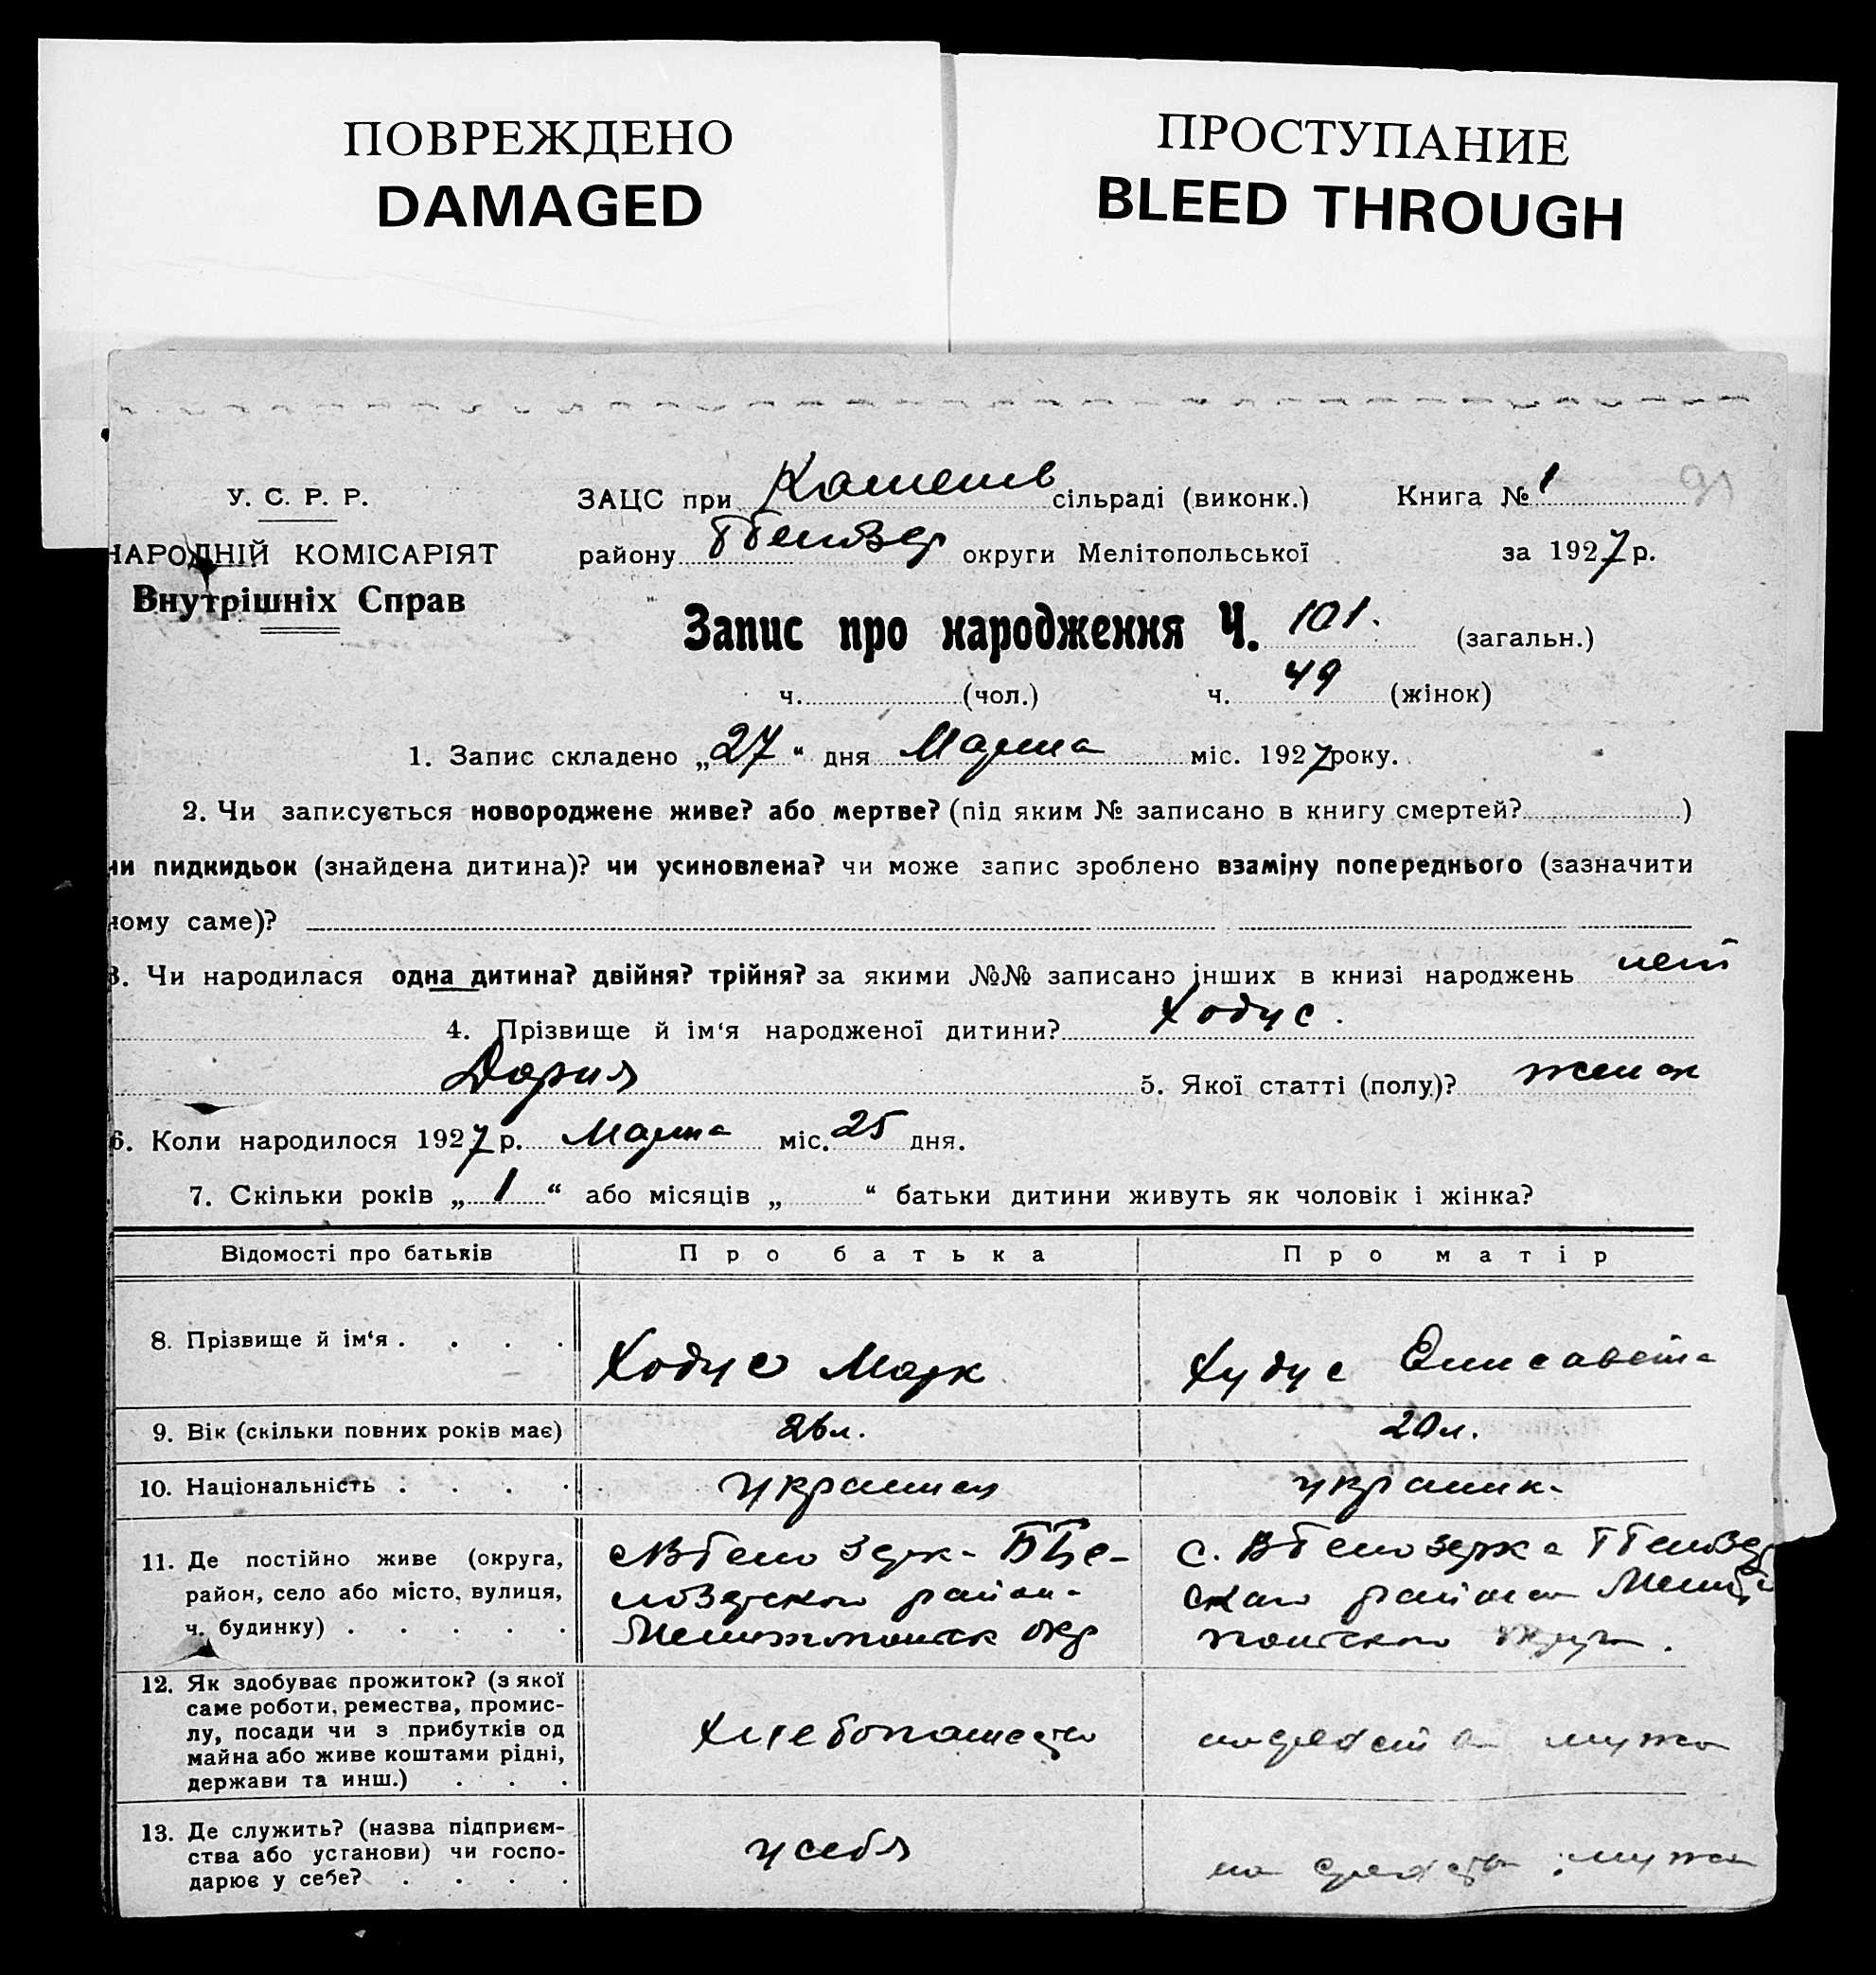 ПОВРЕЖДЕНО
DAMAGED
ПРОСТУПАНИЕ
BLEED THROUGH
У. С. Р. Р.
НАРОДНІЙ КОМІСАРІЯТ
Внутрішніх Справ
ЗАЦС при сільраді (виконк.) Книга № 1 91
району округи Мелітопольської за 1927 р.
Запис про народження Ч. 101. (загальн.)
ч. (чол.) ч. 49 (жінок)
1. Запис складено „27“ дня Марта міс. 1927 року.
2. Чи записується новороджене живе? або мертве? (під яким № записано в книгу смертей? )
чи пидкидьок (знайдена дитина)? чи усиновлена? чи може запис зроблено взаміну попереднього (зазначити
чому саме)?
3. Чи народилася одна дитина? двійня? трійня? за якими №№ записано інших в книзі народжень нет
4. Прізвище й ім‘я народженої дитини? Ходус.
Дария 5. Якої статті (полу)? женск
6. Коли народилося 1927 р. Марта міс. 25 дня.
7. Скільки років „1“ або місяців „ “ батьки дитини живуть як чоловік і жінка?
Відомості про батьків Про батька Про матір
8. Прізвище й ім‘я . . . . Ходус Марк Худус Елисавета
9. Вік (скільки повних років має) 26 л. 20 л.
10. Національність . . . . украинец украинк
11. Де постійно живе (округа,
район, село або місто, вулиця,
ч. будинку) . . . . .
с. В Белозерка Б Бе-
лозерского район
Мелитопольск окр
с. В Белозерка
ского района
польского округа.
12. Як здобуває прожиток? (з якої
саме роботи, ремества, промис-
лу, посади чи з прибутків од
майна або живе коштами рідні,
держави та инш.) . . .
Хлебопашество
на средства мужа
13. Де служить? (назва підприєм-
ства або установи) чи госпо-
дарює у себе? . . . .
у себя
на средства мужа